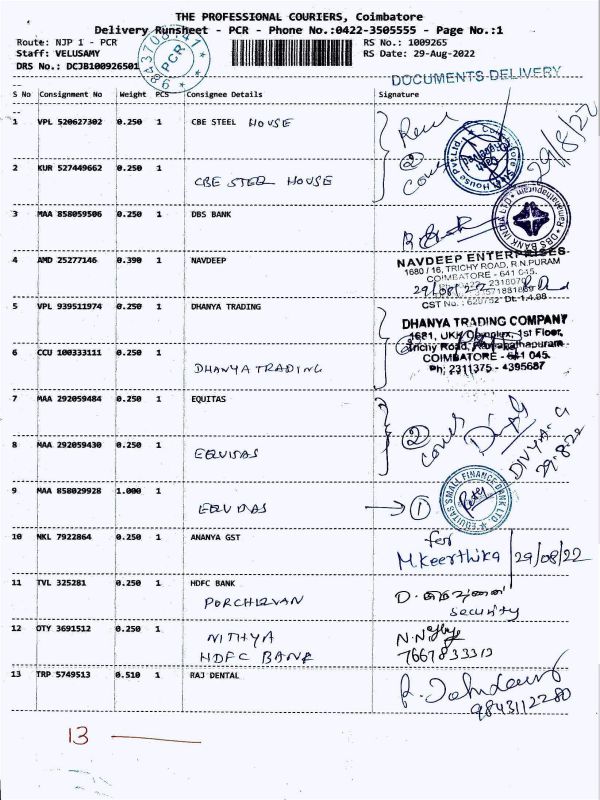 THE PROFESSIONAL COURIERS, Coimbatore
Delivery Runsheet - PCR - Phone No.:0422-3505555 - Page No.:1
Route: NJP 1 - PCR RS No.: 1009265
Staff: VELUSAMY RS Date: 29-Aug-2022
DRS No.: DCJB100926501
PCR
DOCUMENTS DELIVERY
S No Consignment No Weight PCS Consignee Details Signature
1 VPL 520627302 0.250 1 CBE STEEL HOUSE
29/8/22
2 KUR 527449662 0.250 1 CBE STEEL HOUSE
3 MAA 858059506 0.250 1 DBS BANK
DBS BANK INDIA LTD
4 AMD 25277146 0.390 1 NAVDEEP
NAVDEEP ENTERPRISES
1680 / 16, TRICHY ROAD, R.N.PURAM
COIMBATORE - 641 045.
29/08/22
5 VPL 939511974 0.250 1 DHANYA TRADING
DHANYA TRADING COMPANY
1st Floor,
Trichy Road,
COIMBATORE - 641 045.
Ph; 2311375 - 4395687
6 CCU 100333111 0.250 1 DHANYA TRADING
7 MAA 292059484 0.250 1 EQUITAS
2
DIVYA. G
29.8.22
8 MAA 292059430 0.250 1 EQUITAS
9 MAA 858029928 1.000 1 EQUITAS 1
EQUITAS SMALL FINANCE BANK LTD
10 NKL 7922864 0.250 1 ANANYA GST
for
M.Keerthika 29/08/22
11 TVL 325281 0.250 1 HDFC BANK
security
12 OTY 3691512 0.250 1 NITHYA
HDFC BANK
13 TRP 5749513 0.510 1 RAJ DENTAL
9843112280
13